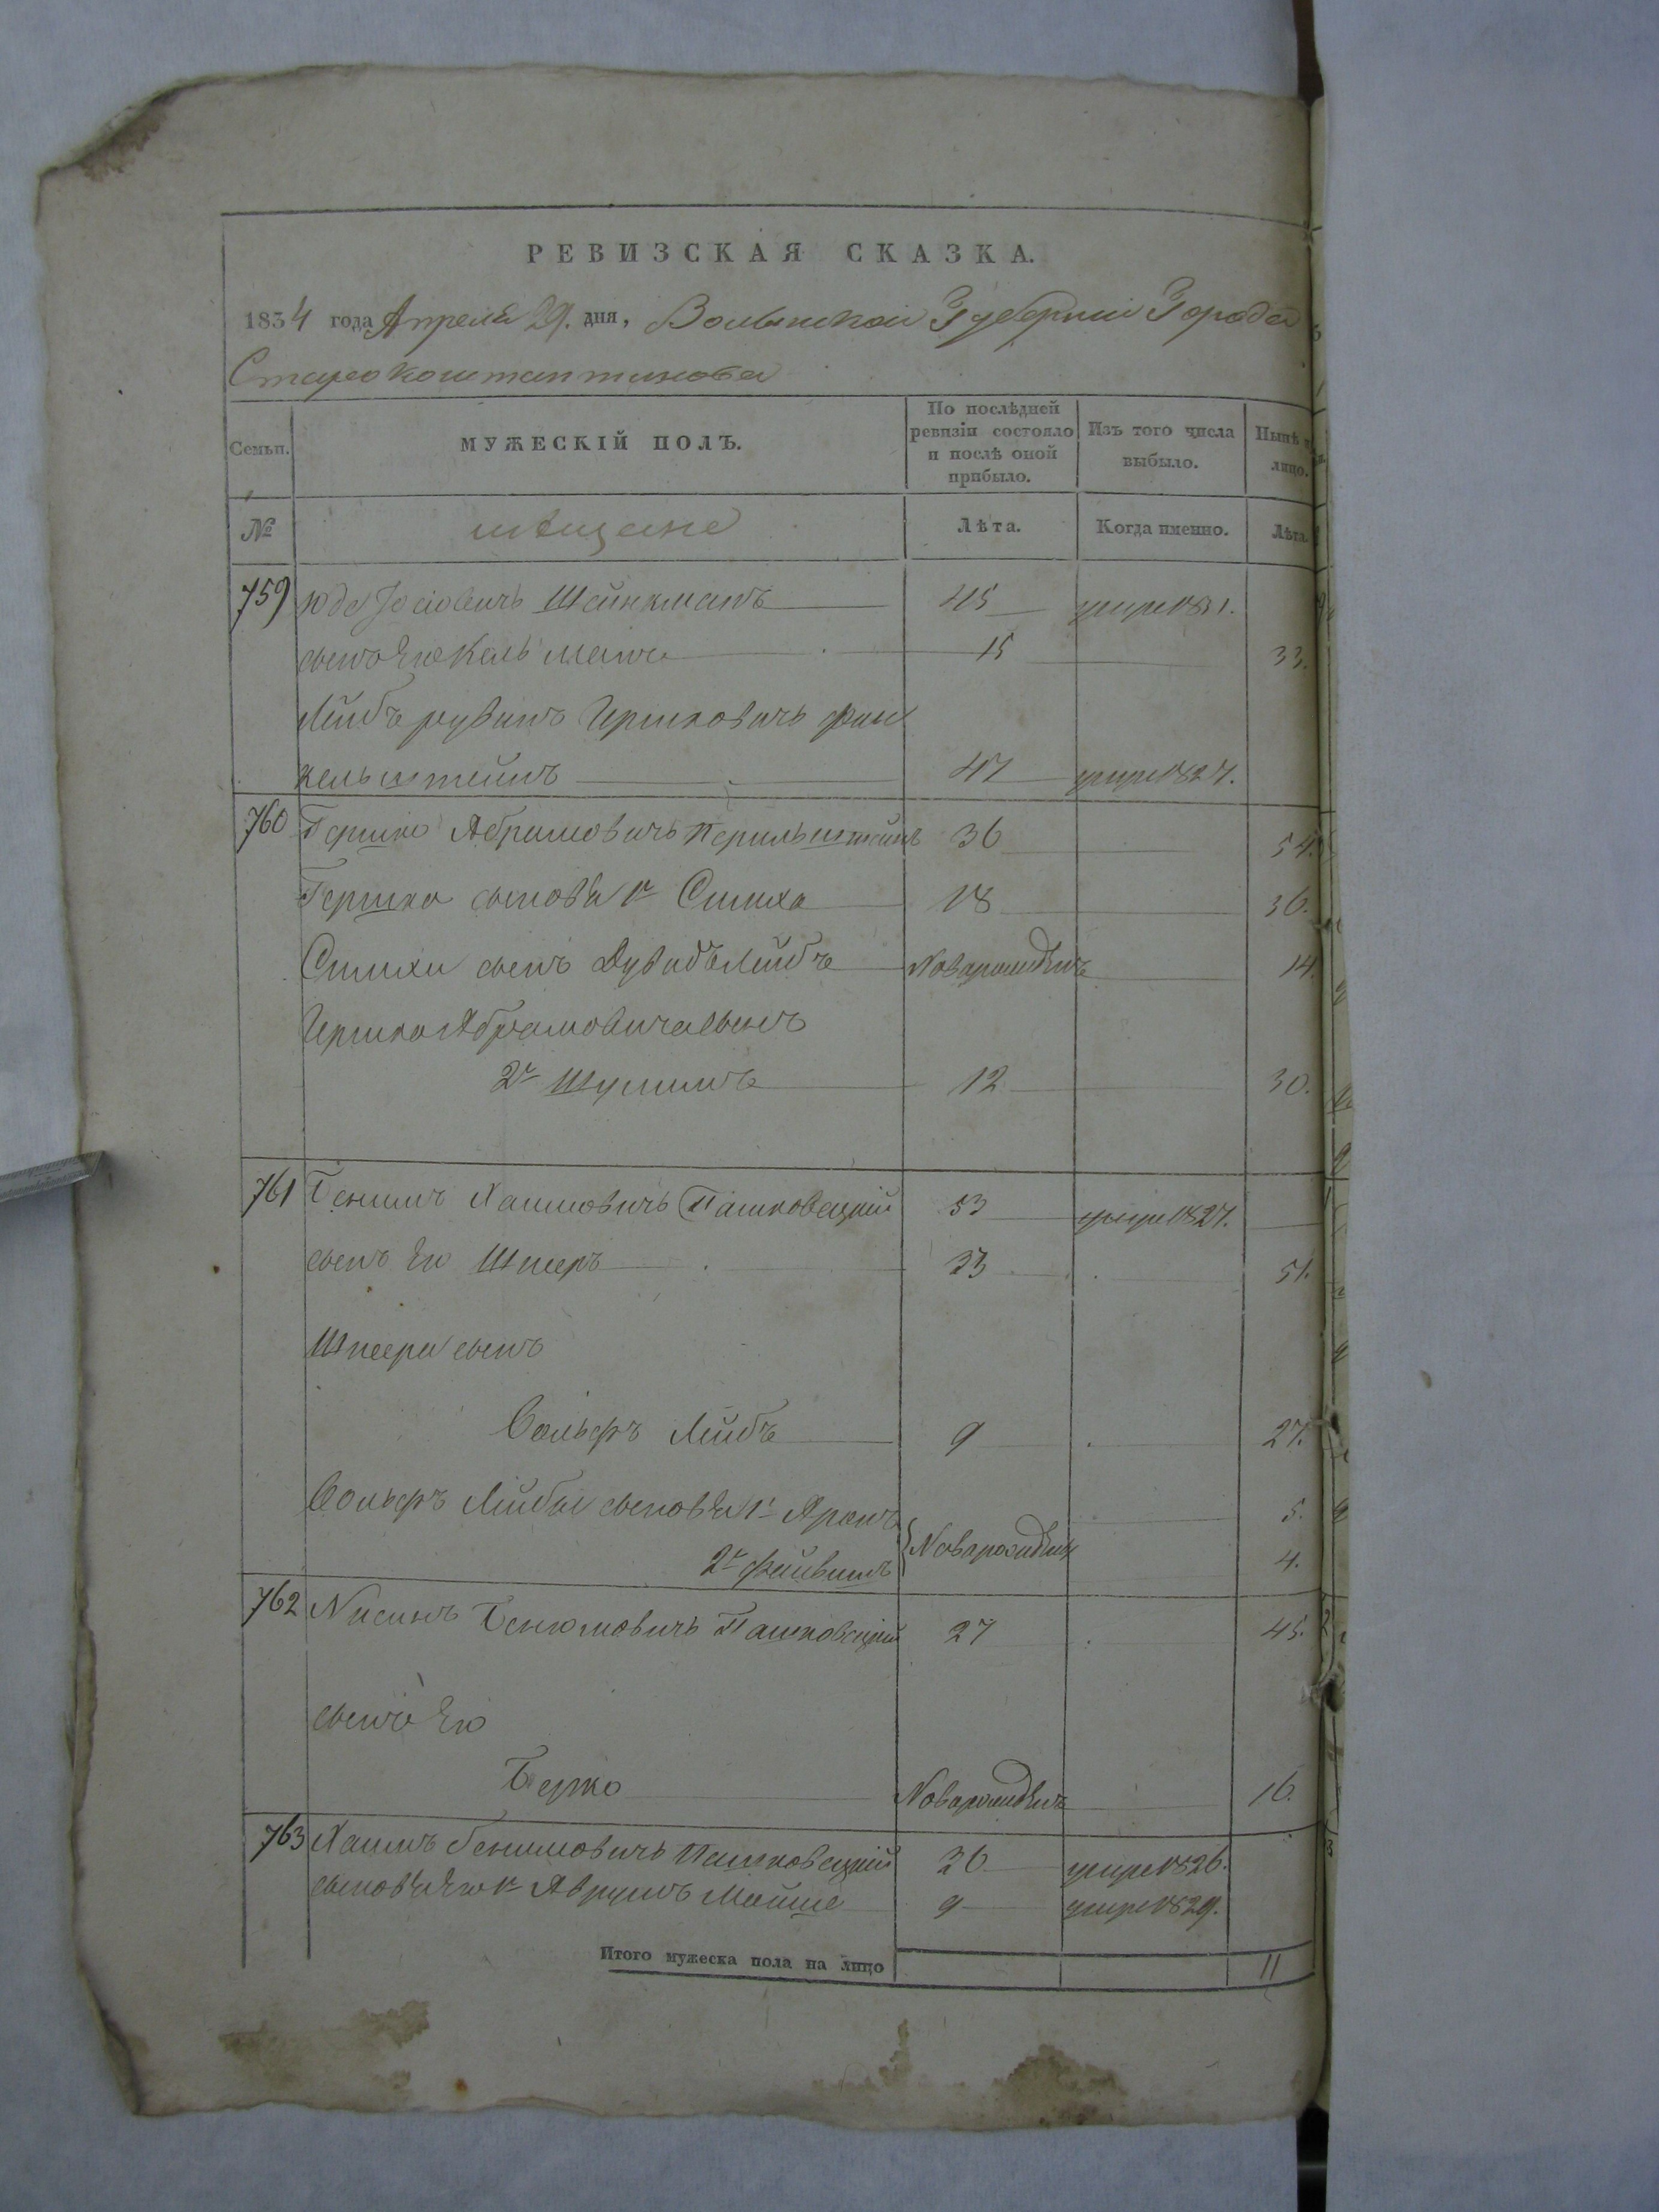 РЕВИЗСКАЯ СКАЗКА.
1834 года Апреля 29. дня, Волынской Губерніи Города
Старо Константинова
Семьи.
МУЖЕСКІЙ ПОЛЪ.
По послѣдней ревизіи состояло и послѣ оной прибыло.
Изъ того числа выбыло.
Нынѣ
лицо.
№ мѣщане Лѣта. Когда именно. Лѣта.
759 Юда Іосіовичъ Шейнкманъ 45 умре 1831.
сынъ Его Кельманъ 15 33.
Лейбъ рувинъ Иршковичъ Фин
кельштейнъ 47 умре 1827.
760 Гершко Абрамовичъ Перильштейнъ 36 54.
Гершка сыновья 1й Симха 18 36.
Симхи сынъ Дувидъ Лейбъ Новарожденъ 14.
Иршка Абрамовича сынъ
2й Шулимъ 12 30.
761 Бенимъ Хаимовичъ Пашковецкій 53 умре 1827.
сынъ Его Шмеръ 33 51.
Шмеера сынъ
Вольфъ Лейбъ 9 27.
Вольфъ Лейбы сыновья 1й Аронъ 5.
2й Файвишъ Новарожденны 4.
762 Нисинъ Бенюмовичъ Пашковецкій 27 45.
сынъ Его
Берко Новарожденъ 16.
763 Хаимъ Бенимовичъ Пашковецкій 26 умре 1826.
сыновья Его 1й Аврумъ Мойше 9 умре 1829.
Итого мужеска пола на лицо 11